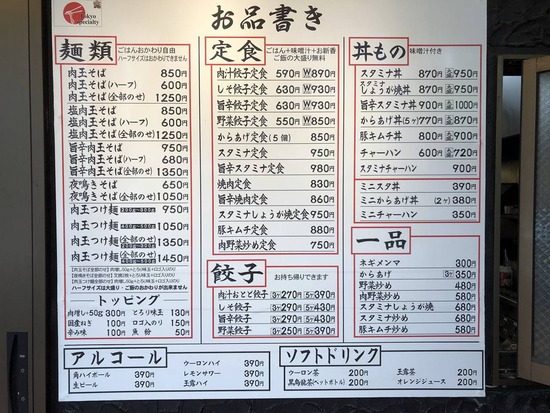 Tokyo
Specialty
お品書き
麺類
ごはんおかわり自由
ハーフサイズはおかわりできません
肉玉そば 850円
肉玉そば(ハーフ) 600円
肉玉そば(全部のせ) 1250円
塩肉玉そば 850円
塩肉玉そば(ハーフ) 600円
塩肉玉そば(全部のせ) 1250円
旨辛肉玉そば 950円
旨辛肉玉そば(ハーフ) 680円
旨辛肉玉そば(全部のせ) 1350円
夜鳴きそば 650円
夜鳴きそば(全部のせ) 1050円
肉玉つけ麺 950円
肉玉つけ麺 1050円
肉玉つけ麺(全部のせ) 1350円
肉玉つけ麺(全部のせ) 1450円
ハーフサイズは大盛り・ご飯のおかわりが出来ません
トッピング
肉増し・50g 300円 とろり味玉 130円
国産ねぎ 100円 ロゴ入のり 150円
辛み味 100円 魚粉 50円
定食
ごはん+味噌汁+お新香
ご飯の大盛り無料
肉汁餃子定食 590円 W890円
しそ餃子定食 630円 W930円
旨辛餃子定食 630円 W930円
野菜餃子定食 550円 W850円
からあげ定食(5個) 850円
スタミナ定食 950円
旨辛スタミナ定食 980円
焼肉定食 830円
旨辛焼肉定食 860円
スタミナしょうが焼定食 950円
豚キムチ定食 880円
肉野菜炒め定食 750円
餃子
お持ち帰りできます
肉汁おとど餃子 3ケ270円 5ケ390円
しそ餃子 3ケ290円 5ケ430円
旨辛餃子 3ケ290円 5ケ430円
野菜餃子 3ケ250円 5ケ390円
丼もの
味噌汁付き
スタミナ丼 870円 950円
スタミナしょうが焼丼 870円 950円
旨辛スタミナ丼 900円 1000円
からあげ丼(5ケ) 770円 870円
豚キムチ丼 800円 900円
チャーハン 600円 720円
スタミナチャーハン 900円
ミニスタ丼 390円
ミニからあげ丼 (2ヶ) 380円
ミニチャーハン 350円
一品
ネギメンマ 300円
からあげ 3ヶ 350円
野菜炒め 480円
肉野菜炒め 580円
スタミナしょうが焼 680円
スタミナ炒め 680円
豚キムチ炒め 580円
アルコール
角ハイボール 390円 ウーロンハイ 390円
生ビール 390円 レモンサワー 390円
玉露ハイ 390円
ソフトドリンク
ウーロン茶 200円 玉露茶 200円
黒烏龍茶(ペットボトル) 200円 オレンジジュース 200円